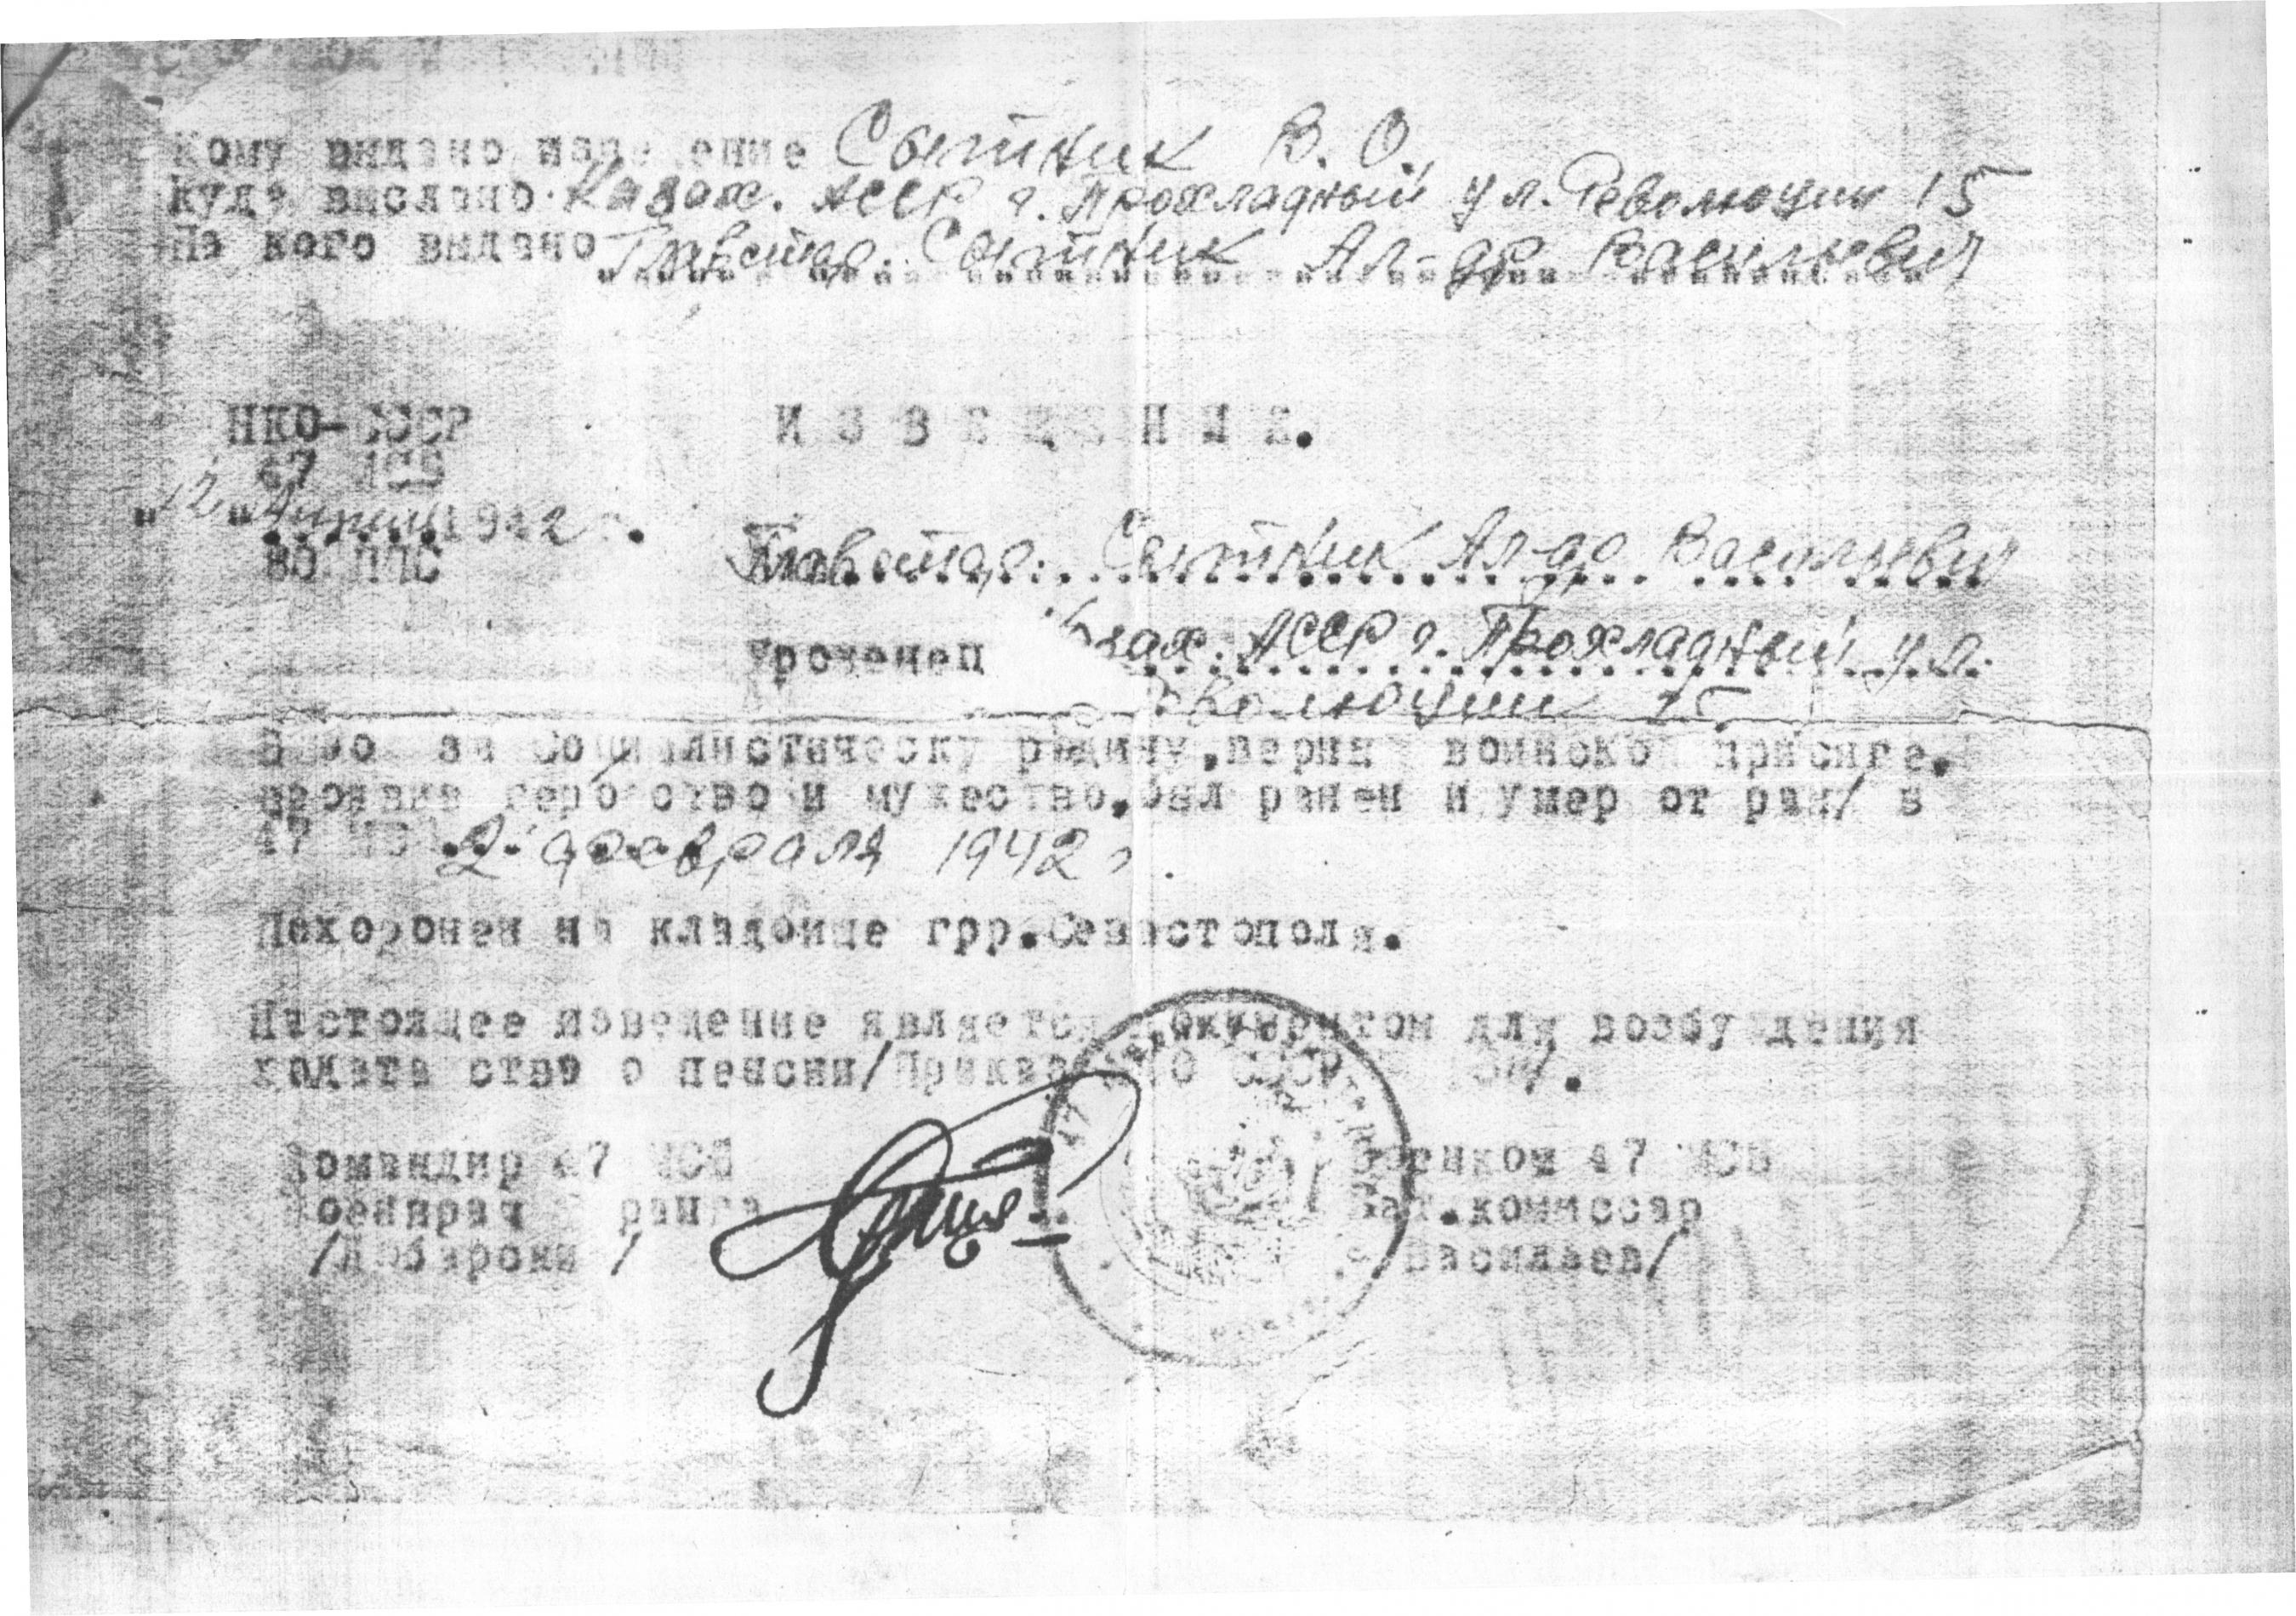 Кому выдано извещение Сытник В. О.
Куда выслано Казах. АССР г. Прохладный ул. Революции 15
На кого выдано Главстар. Сытник Ал-др Васильевич
НКО-СССР
ИЗВЕЩЕНИЕ.
47 МСБ
"12" Апреля 1942 г.
80 ППС
Главстар. Сытник Ал-др Васильевич
Уроженец Казах. АССР г. Прохладный ул.
Революции 15
В бою за Социалистическу родину, верный воинской присяге,
проявив геройство и мужество, был ранен и умер от ран/ в
47 МСБ 2 февраля 1942 г.
Похоронен на кладбище грр.Севастополя.
Настоящее извещение является документом для возбуждения
ходатайства о пенсии/Приказ НКО СССР
Командир 47 МСБ
Военврач ранга
Военком 47 МСБ
Бат.комиссар
/Васильев/